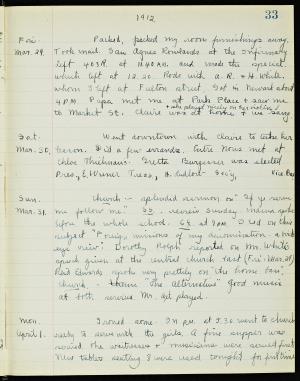 1912.
33
Fri. Packed, packed my room furnishings away.
Mar. 29. Took mail. Saw Agnes Rowlands at the Infirmary
Left 405R. at 11:40 A.M. and made the special
which left at 12.20. Rode with A.R. + H. White.
whom I left at Fulton street. Got in Newark about
4 P.M. Papa met me at Park Place + saw me
to Market St. Claire was at home + we sang
Sat. Went downtown with Claire to take her
Mar. 30. lesson. Did a few errands. Entre Nous met at
Chloe Thielhaus. Gretta was elected
Pres., E. Werner Treas., Sec'y, Vice Pres
Sun. Church - splendid sermon on "If ye serve
Mar. 31. me follow me." S.S. session Sunday
before the whole school. C.E. at 7 P.M. I led on this
subject "Foreign missions of my denomination: a bird's
eye view." Dorothy Rolph reported on Mr. White's
speech given at the Central church last (Fri. Mar. 22)
spoke very prettily on "the home ".
Church - "The Alternative" Good music
at both services. Mr. played.
Mon. Ironed some. In P.M. at 5.30 went to church
April 1. early to serve with the girls. A fine supper was
served. The waitresses + musicians were served first
New tables seating 8 were used tonight for first time